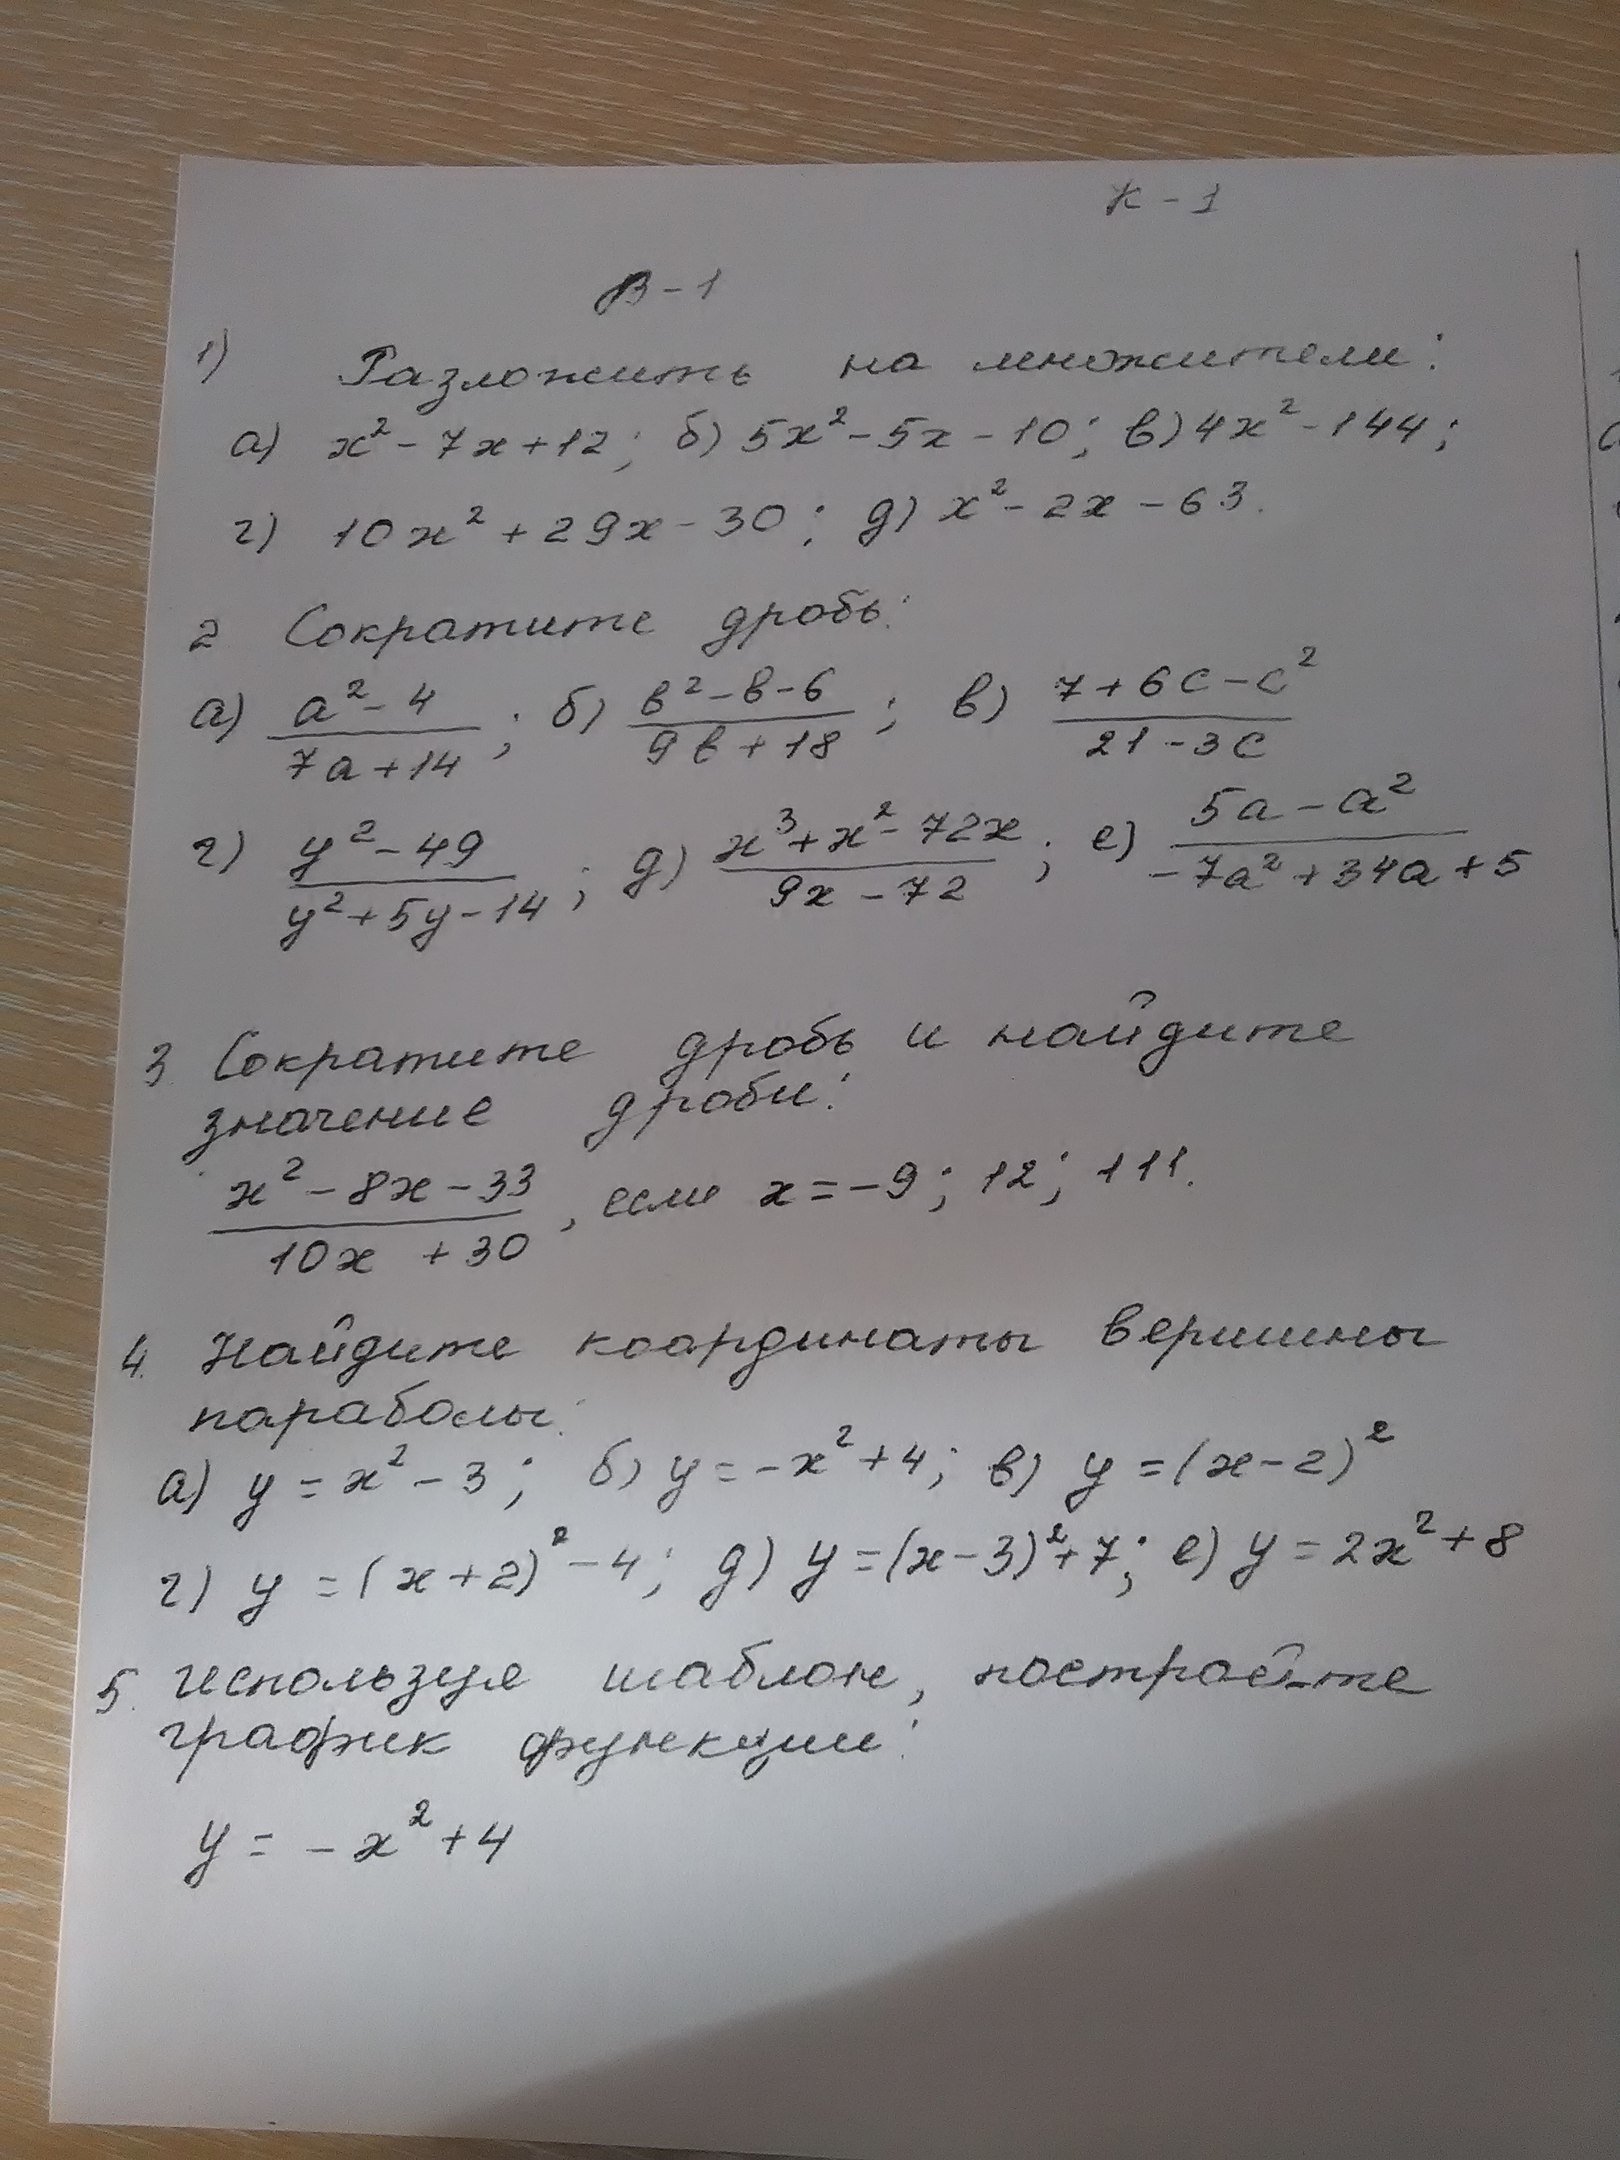 К - 1
В - 1
1) Разложить на множители:
а) x² - 7x + 12; б) 5x² - 5x - 10; в) 4x² - 144;
г) 10x² + 29x - 30; д) x² - 2x - 63.
2 Сократите дробь:
а) (a² - 4)/(7a + 14); б) (b² - b - 6)/(9b + 18); в) (7 + 6c - c²)/(21 - 3c)
г) (y² - 49)/(y² + 5y - 14); д) (x³ + x² - 72x)/(9x - 72); е) (5a - a²)/(-7a² + 34a + 5)
3. Сократите дробь и найдите
значение дроби:
(x² - 8x - 33)/(10x + 30), если x = -9; 12; 111.
4. Найдите координаты вершины
параболы:
а) y = x² - 3; б) y = -x² + 4; в) y = (x - 2)²
г) y = (x + 2)² - 4; д) y = (x - 3)² + 7; е) y = 2x² + 8
5. Используя шаблон, постройте
график функции:
y = -x² + 4